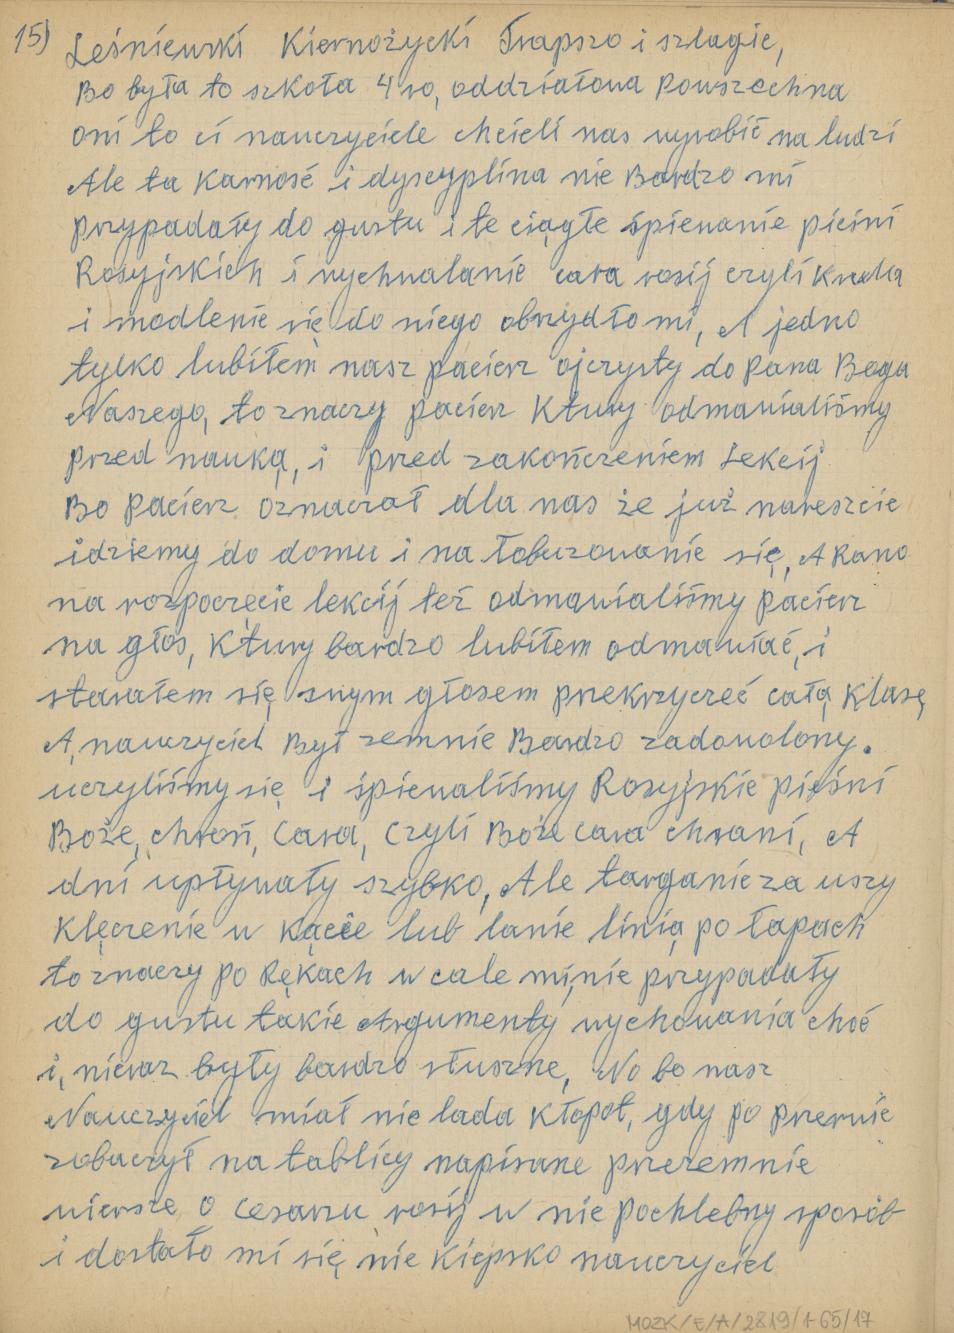 15) Leśniewski Kiernożycki Trapszo i szlagie,
Bo była to szkoła 4ro, oddziałowa Powszechna
oni to ci nauczyciele chcieli nas wyrobić na ludzi
Ale ta Karność i dyscyplina nie Bardzo mi
przypadały do gustu i te ciągłe śpiewanie pieśni
Rosyjskich i wychwalanie cara rosij czyli Kruka
i modlenie się do niego obrzydło mi, A jedno
tylko lubiłem nasz pacierz ojczysty do Pana Boga
Naszego, to znaczy pacierz Ktury odmawialiśmy
przed nauką, i przed zakończeniem Lekcij
Bo Pacierz oznaczał dla nas że już nareszcie
idziemy do domu i na łobuzowanie się, A Rano
na rozpoczęcie lekcij też odmawialiśmy pacierz
na głos, Ktury bardzo lubiłem odmawiać, i
starałem się swym głosem przekrzyczeć całą Klasę
A, nauczyciel Był zemnie Bardzo zadowolony.
uczyliśmy się i śpiewaliśmy Rosyjskie pieśni
Boże, chroń, Cara, Czyli Boże cara chrani, A
dni upływały szybko, Ale targanie za uszy
Klęczenie w Kącie lub lanie linią po łapach
to znaczy po Rękach w cale mi, nie przypadały
do gustu takie Argumenty wychowania choć
i, nieraz były bardzo słuszne, No bo nasz
Nauczyciel miał nie lada Kłopot, gdy po przerwie
zobaczył na tablicy napisane przezemnie
wiersze o Cesarzu rosij w nie Pochlebny sposób
i dostało mi się nie Kiepsko nauczyciel
MOZK/E/A/2819/1-65/17